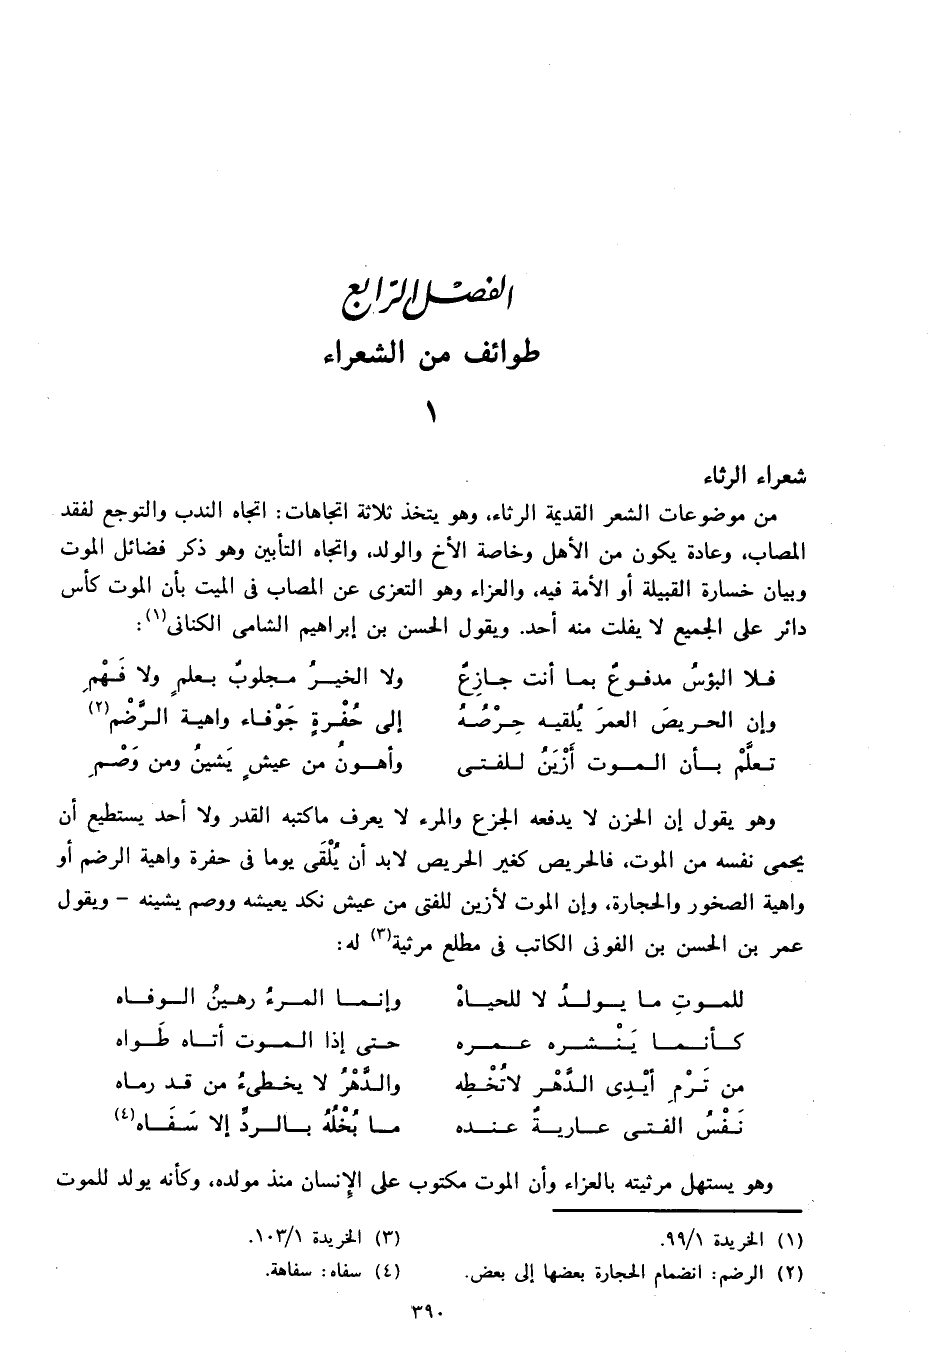 الفصل الرابع
طوائف من الشعراء
١
شعراء الرثاء
من موضوعات الشعر القديمة الرثاء، وهو يتخذ ثلاثة اتجاهات: اتجاه الندب والتوجع لفقد
المصاب، وعادة يكون من الأهل وخاصة الأخ والولد، واتجاه التأبين وهو ذكر فضائل الموت
وبيان خسارة القبيلة أو الأمة فيه، والعزاء وهو التعزى عن المصاب فى الميت بأن الموت كأس
دائر على الجميع لا يفلت منه أحد. ويقول الحسن بن إبراهيم الشامى الكنانى(١):
فلا البؤسُ مدفوعٌ بما أنت جازِعٌ ولا الخيرُ مجلوبٌ بعلمٍ ولا فَهْمِ
وإن الحريصَ العمرَ يُلقيه حِرْصُهُ إلى حُفْرةٍ جَوْفاء واهية الرَّضْم(٢)
تعلَّمْ بأن الموت أزْيَنُ للفتى وأهونُ من عيشٍ يَشينُ ومن وَصْمِ
وهو يقول إن الحزن لا يدفعه الجزع والمرء لا يعرف ماكتبه القدر ولا أحد يستطيع أن
يحمى نفسه من الموت، فالحريص كغير الحريص لابد أن يُلْقَى يوما فى حفرة واهية الرضم أو
واهية الصخور والحجارة، وإن الموت لأزين للفتى من عيش نكد يعيشه ووصم يشينه – ويقول
عمر بن الحسن بن الفونى الكاتب فى مطلع مرثية(٣) له:
للموتِ ما يولدُ لا للحياهْ وإنما المرءُ رهينُ الوفاه
كأنما يَنْشره عمره حتى إذا الموت أتاه طَواه
من تَرْمِ أيْدِى الدَّهْر لاتُخْطِه والدَّهْرُ لا يخطىءُ من قد رماه
نَفْسُ الفتى عاريةٌ عنده ما بُخْلُهُ بالردِّ إلا سَفَاه(٤)
وهو يستهل مرثيته بالعزاء وأن الموت مكتوب على الإنسان منذ مولده، وكأنه يولد للموت
(١) الخريدة ٩٩/١.
(٢) الرضم: انضمام الحجارة بعضها إلى بعض.
(٣) الخريدة ١٠٣/١.
(٤) سفاه: سفاهة.
٣٩٠